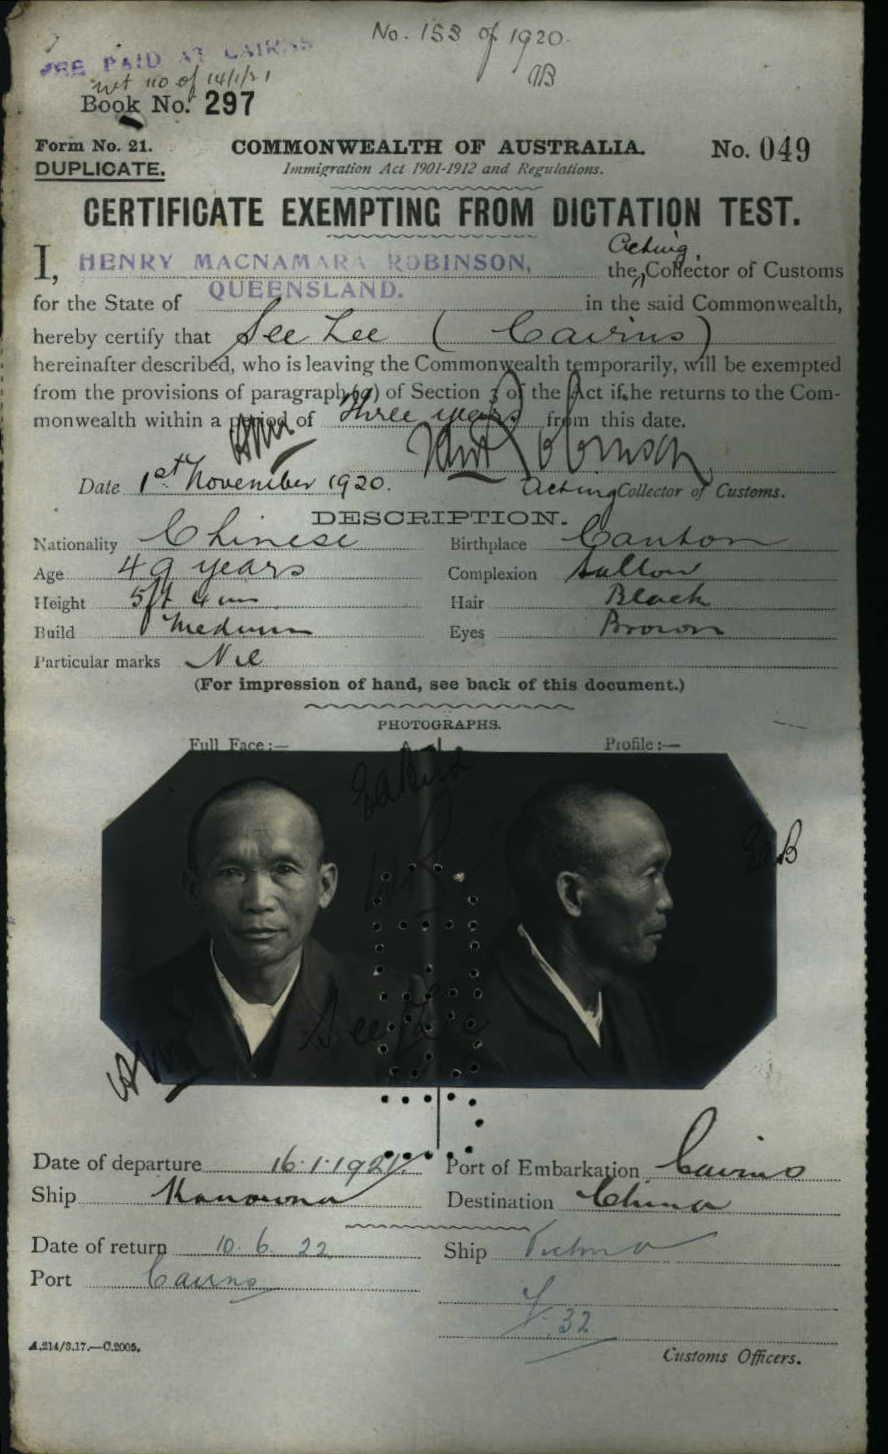 No. 153 of 1920.
FEE PAID AT CAIRNS
of 14/1/21
Book No. 297
Form No. 21.
COMMONWEALTH OF AUSTRALIA.
No. 049
DUPLICATE.
Immigration Act 1901-1912 and Regulations.
CERTIFICATE EXEMPTING FROM DICTATION TEST.
I, HENRY MACNAMARA ROBINSON, the Acting Collector of Customs
for the State of QUEENSLAND. in the said Commonwealth,
hereby certify that See Lee (Cairns)
hereinafter described, who is leaving the Commonwealth temporarily, will be exempted
from the provisions of paragraph (a) of Section 3 of the Act if he returns to the Com-
monwealth within a period of three years from this date.
Date 1st November 1920.
Acting Collector of Customs.
DESCRIPTION.
Nationality Chinese
Birthplace Canton
Age 49 years
Complexion Sallow
Height 5ft 4 ins
Hair Black
Build Medium
Eyes Brown
Particular marks Nil
(For impression of hand, see back of this document.)
PHOTOGRAPHS.
Full Face :—
Profile :—
See Lee
Date of departure 16.1.1921.
Port of Embarkation Cairns
Ship Kanowna
Destination China
Date of return 10. 6. 22
Ship
Port Cairns
32
A.214/3.17.—C.2005.
Customs Officers.